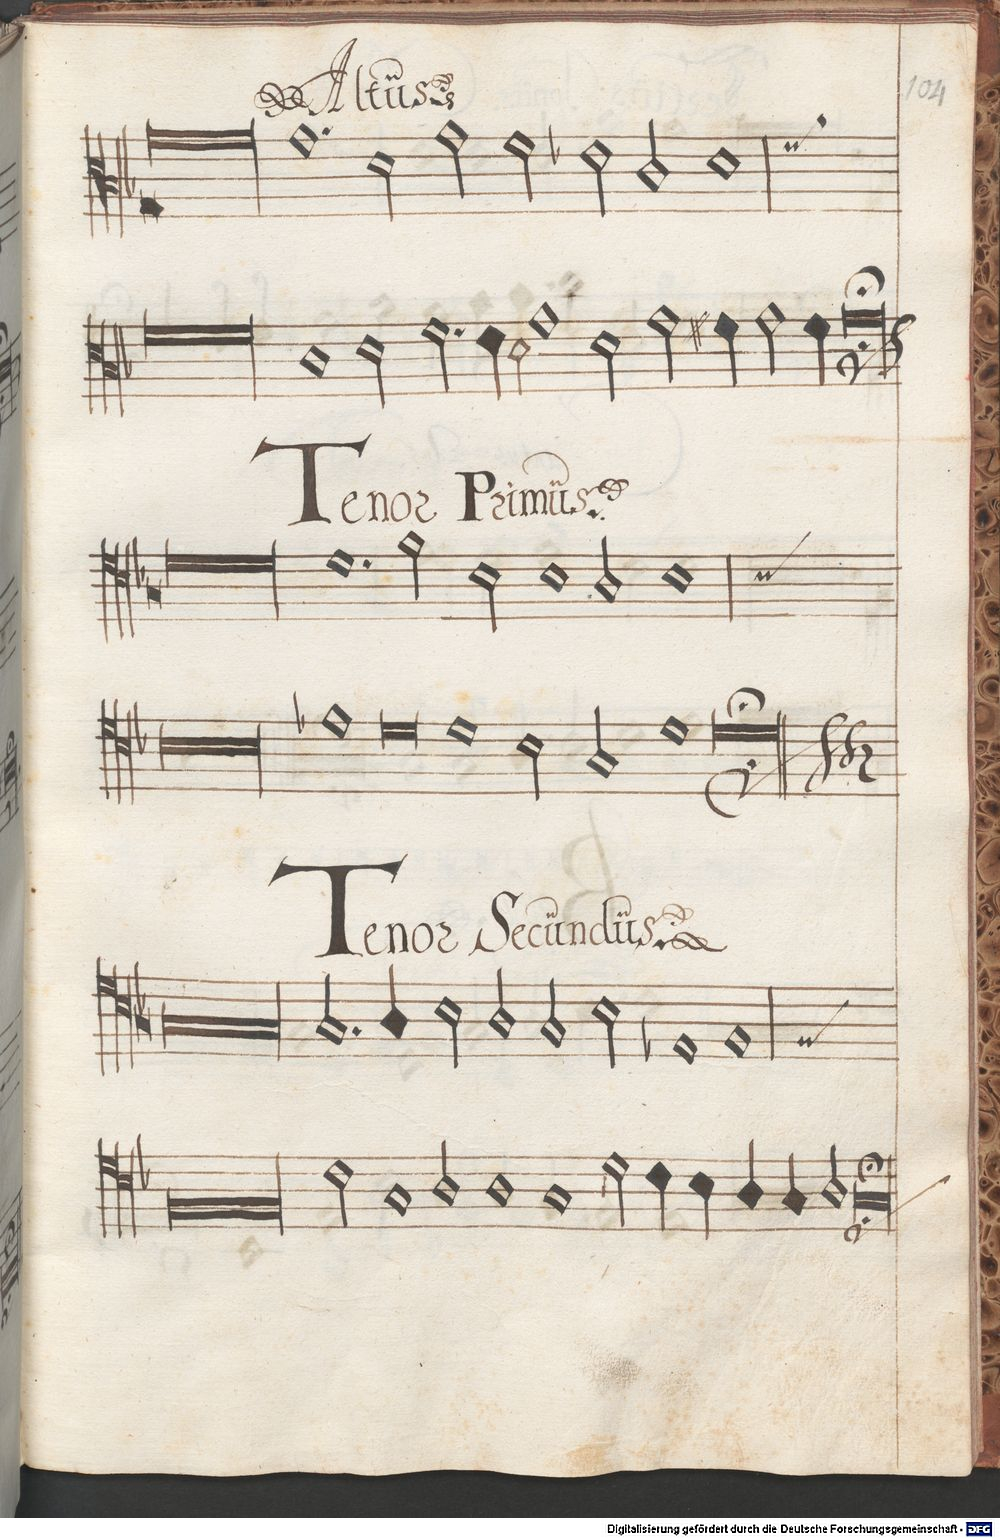 Altus
104
Tenor Primus
Tenor Secundus
Digitalisierung gefördert durch die Deutsche Forschungsgemeinschaft - DFG